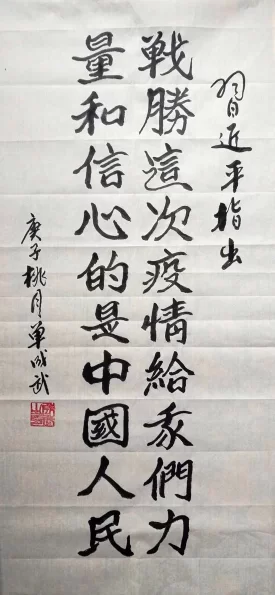 習近平指出
戦勝這次疫情給我們力
量和信心的是中國人民
庚子桃月單成武